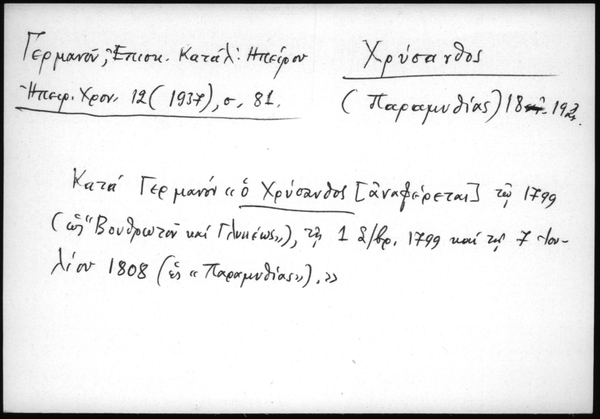 Γερμανοῦ, Ἐπισκ. Κατάλ. Ηπείρου
Ηπειρ. Χρον. 12 (1937), σ. 81.
Χρύσανθος
(Παραμυθίας) 18
Κατά Γερμανόν «ὁ Χρύσανθος [ἀναφέρεται] τῷ 1799
(ὡς "Βουθρωτοῦ καί Γλυκέως»), τῇ 1 δ/βρ. 1799 καί τῇ 7 Ἰου-
λίου 1808 (ὡς «Παραμυθίας»).»